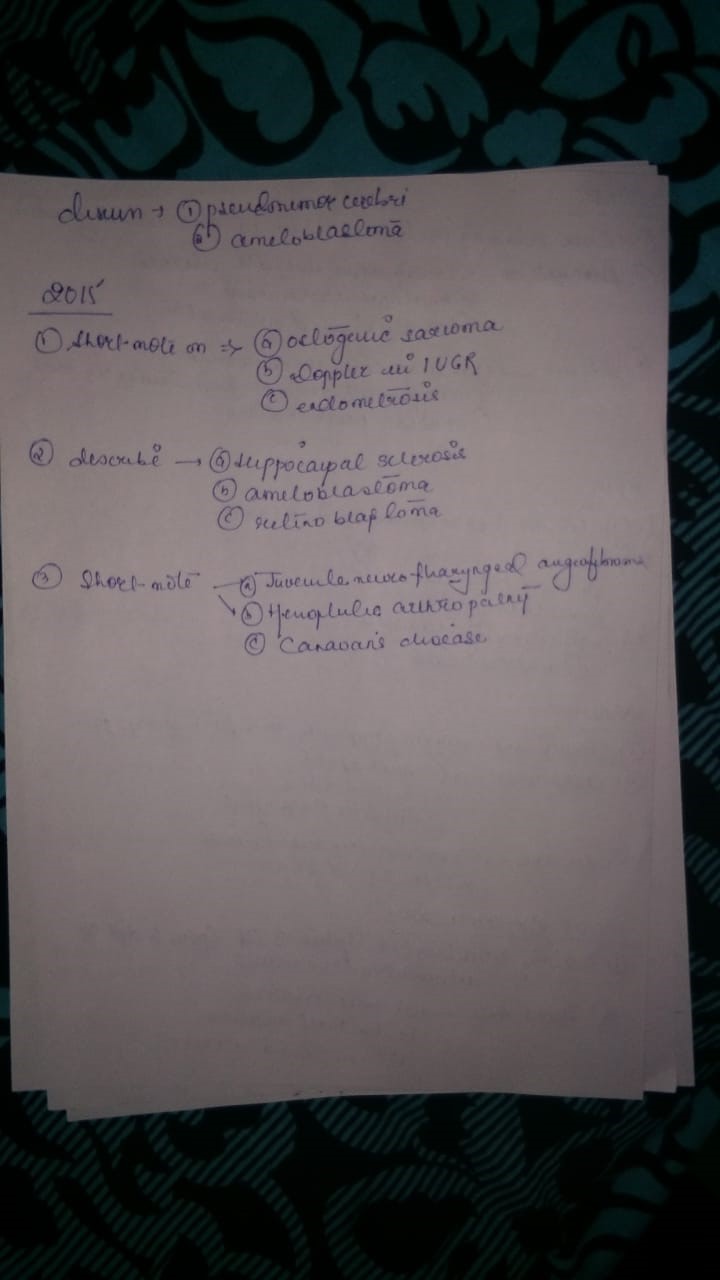 discuss → ① pseudotumor cerebri
② ameloblastoma
2015
① Short-note on ⇒ ⓐ osteogenic sarcoma
ⓑ Doppler in IUGR
ⓒ endometriosis
② describe → ⓐ Hippocampal sclerosis
ⓑ ameloblastoma
ⓒ retinoblastoma
③ Short-note → ⓐ Juvenile pharyngeal angiofibroma
ⓑ Hemophilic arthropathy
ⓒ Canavan's disease